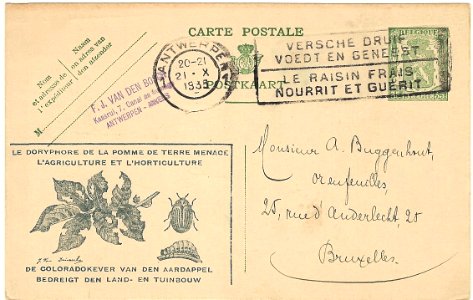 CARTE POSTALE
POSTKAART
BELGIQUE
Naam
en adres van
den afzender
Nom
et adresse de
l'expéditeur
M
F. J. VAN DEN
ANTWERPEN
ANTWERPEN
20-21
21 · X
1935
VERSCHE DRUIF
VOEDT EN GENEEST
LE RAISIN FRAIS
NOURRIT ET GUÉRIT
Monsieur A. Buggenhout,
25, rue d'Anderlecht, 25
Bruxelles.
LE DORYPHORE DE LA POMME DE TERRE MENACE
L'AGRICULTURE ET L'HORTICULTURE
DE COLORADOKEVER VAN DEN AARDAPPEL
BEDREIGT DEN LAND- EN TUINBOUW